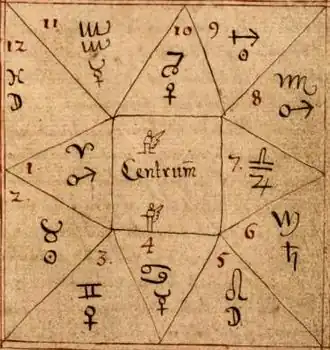 11
♒
☿
10
♑
♀
9
♐
☉
12
♓
☽
8
♏
♂
1
♈
♂
Centrum̄
7
♎
♃
2
♉
☉
6
♍
♄
3
♊
♀
4
♋
☿
5
♌
☽